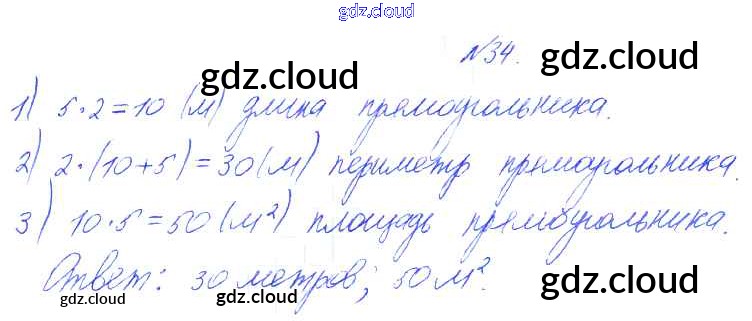 gdz.cloud
№34.
gdz.cloud gdz.cloud
1) 5·2=10 (м) длина прямоугольника.
gdz.cloud
2) 2·(10+5)=30(м) периметр прямоугольника.
3) 10·5=50(м²) площадь прямоугольника.
gdz.cloud gdz.cloud
Ответ: 30 метров; 50 м².
gdz.cloud gdz.cloud gdz.cloud